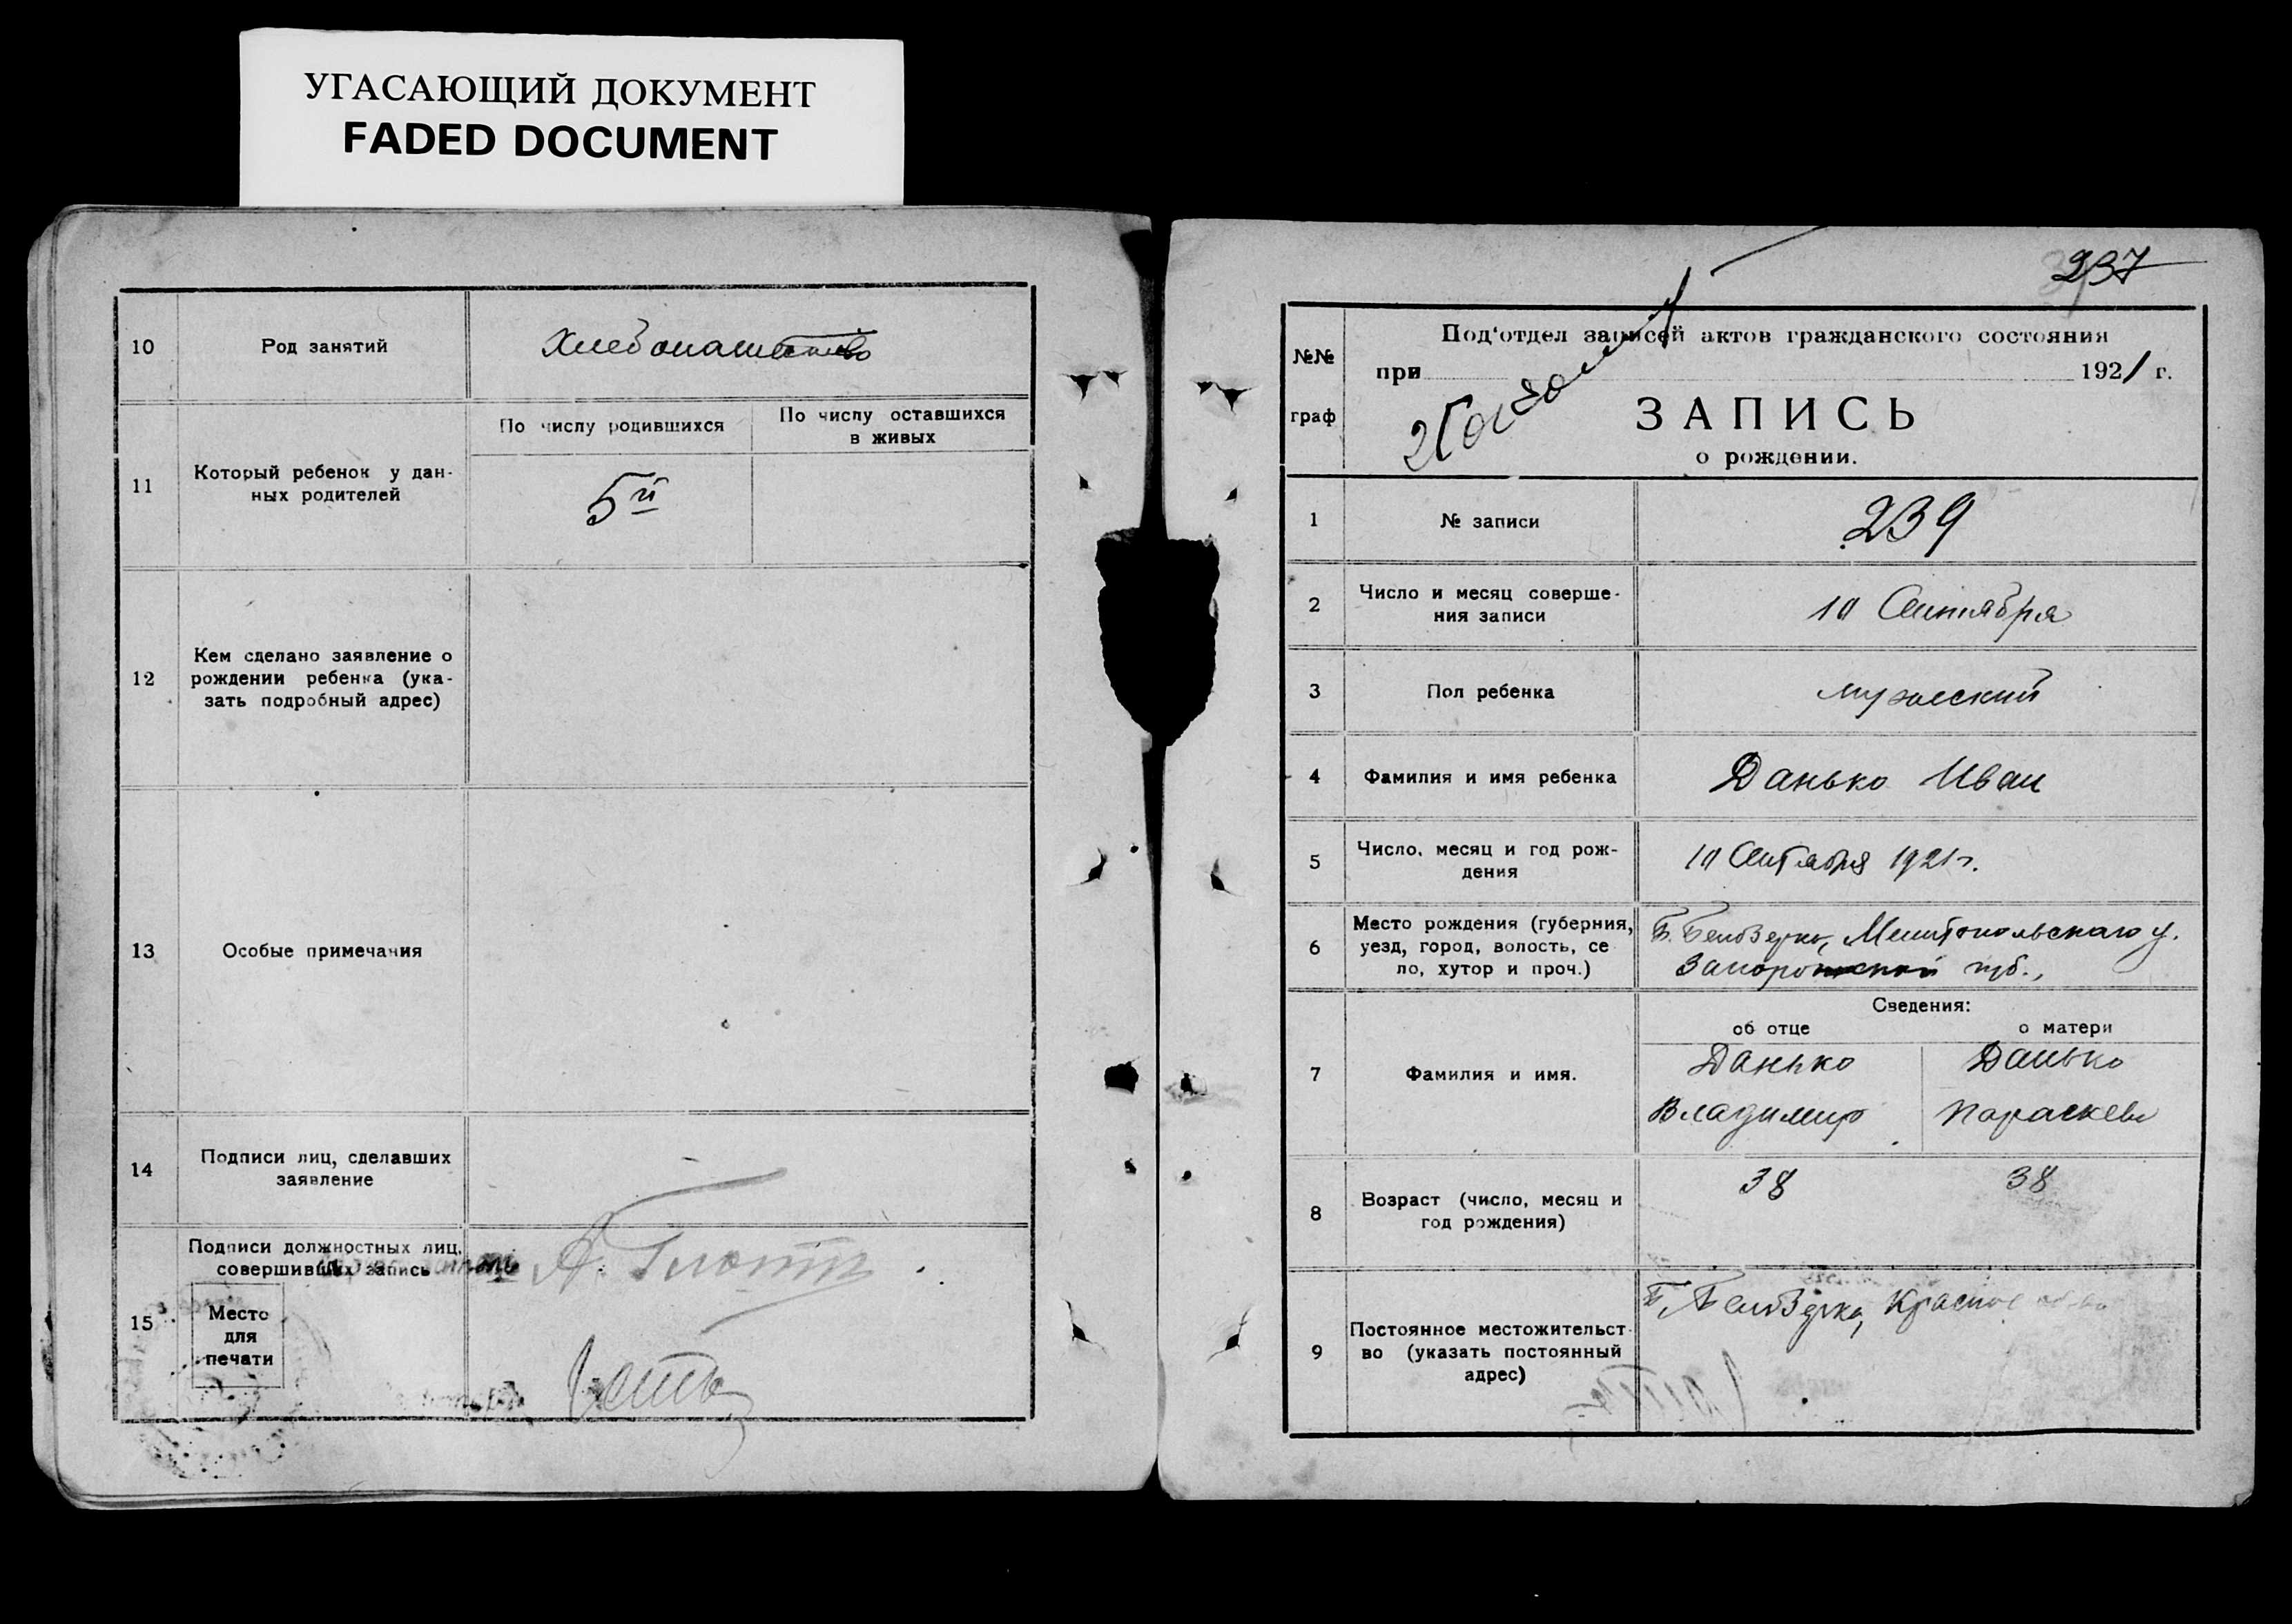 УГАСАЮЩИЙ ДОКУМЕНТ
FADED DOCUMENT
10
Род занятий
Хлебопашество
11
Который ребенок у дан-
ных родителей
По числу родившихся
По числу оставшихся
в живых
5й
12
Кем сделано заявление о
рождении ребенка (ука-
зать подробный адрес)
13
Особые примечания
14
Подписи лиц, сделавших
заявление
15
Подписи должностных лиц,
совершивших запись
Место
для
печати
237
№№
граф
Под'отдел записей актов гражданского состояния
при 1921 г.
ЗАПИСЬ
о рождении.
1
№ записи
239
2
Число и месяц соверше-
ния записи
10 Сентября
3
Пол ребенка
мужеский
4
Фамилия и имя ребенка
Данько Иван
5
Число, месяц и год рож-
дения
10 Сентября 1921 г.
6
Место рождения (губерния,
уезд, город, волость, се
ло, хутор и проч.)
Б. Белозерка, Мелитопольскаго у.
Запорожской губ.,
Сведения:
об отце
о матери
7
Фамилия и имя.
Данько
Владимир
Данько
Параскева
8
Возраст (число, месяц и
год рождения)
38
38
9
Постоянное местожительст-
во (указать постоянный
адрес)
Б. Белозерка,